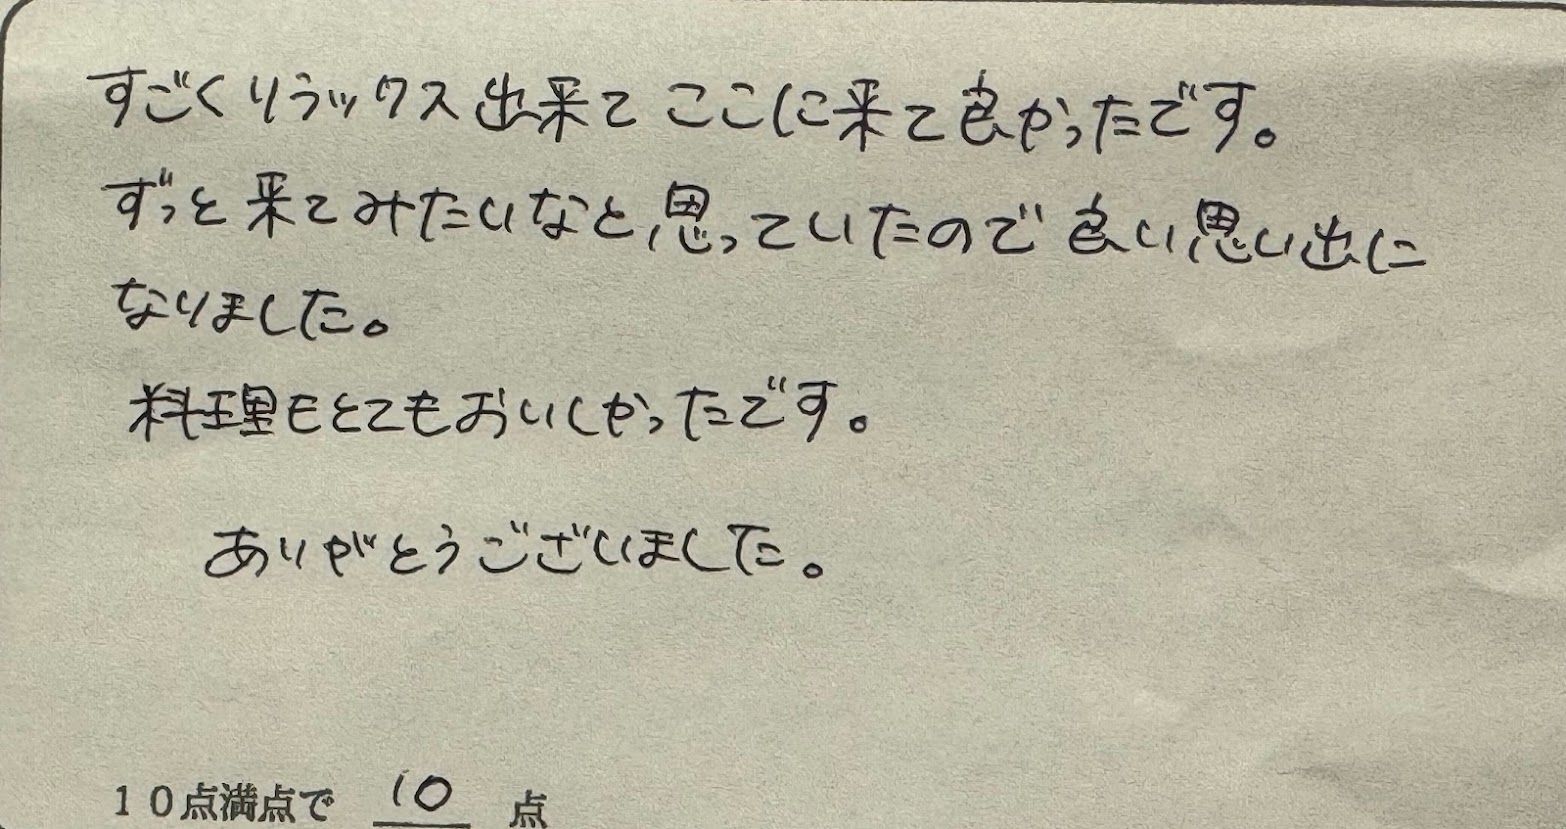 すごくリラックス出来てここに来て良かったです。
ずっと来てみたいなと思っていたので良い思い出に
なりました。
料理もとてもおいしかったです。
ありがとうございました。
10点満点で 10 点